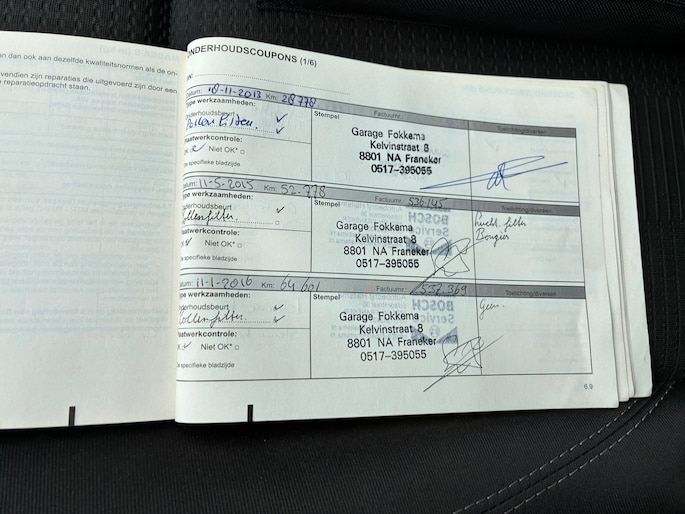 en dan ook aan dezelfde kwaliteitsnormen als de on-
vendien zijn reparaties die uitgevoerd zijn door een
reparatieopdracht staan.
ONDERHOUDSCOUPONS (1/6)
VIN:
Datum: 18-11-2013 Km: 28.778 Factuurnr. Toelichting/diversen
Type werkzaamheden:
Onderhoudsbeurt
Pollen filter.
Plaatwerkcontrole:
OK Niet OK*
Zie specifieke bladzijde
Stempel
Garage Fokkema
Kelvinstraat 8
8801 NA Franeker
0517-395055
Datum: 11-5-2015 Km: 52.778 Factuurnr. 536145 Toelichting/diversen
Type werkzaamheden:
Onderhoudsbeurt
Pollenfilter.
Plaatwerkcontrole:
OK Niet OK*
Zie specifieke bladzijde
Stempel
Garage Fokkema
Kelvinstraat 8
8801 NA Franeker
0517-395055
Lucht filter
Bougies
Datum: 11-1-2016 Km: 64.601 Factuurnr. 537.369 Toelichting/diversen
Type werkzaamheden:
Onderhoudsbeurt
Pollenfilter
Plaatwerkcontrole:
OK Niet OK*
Zie specifieke bladzijde
Stempel
Garage Fokkema
Kelvinstraat 8
8801 NA Franeker
0517-395055
Geen.
6.9